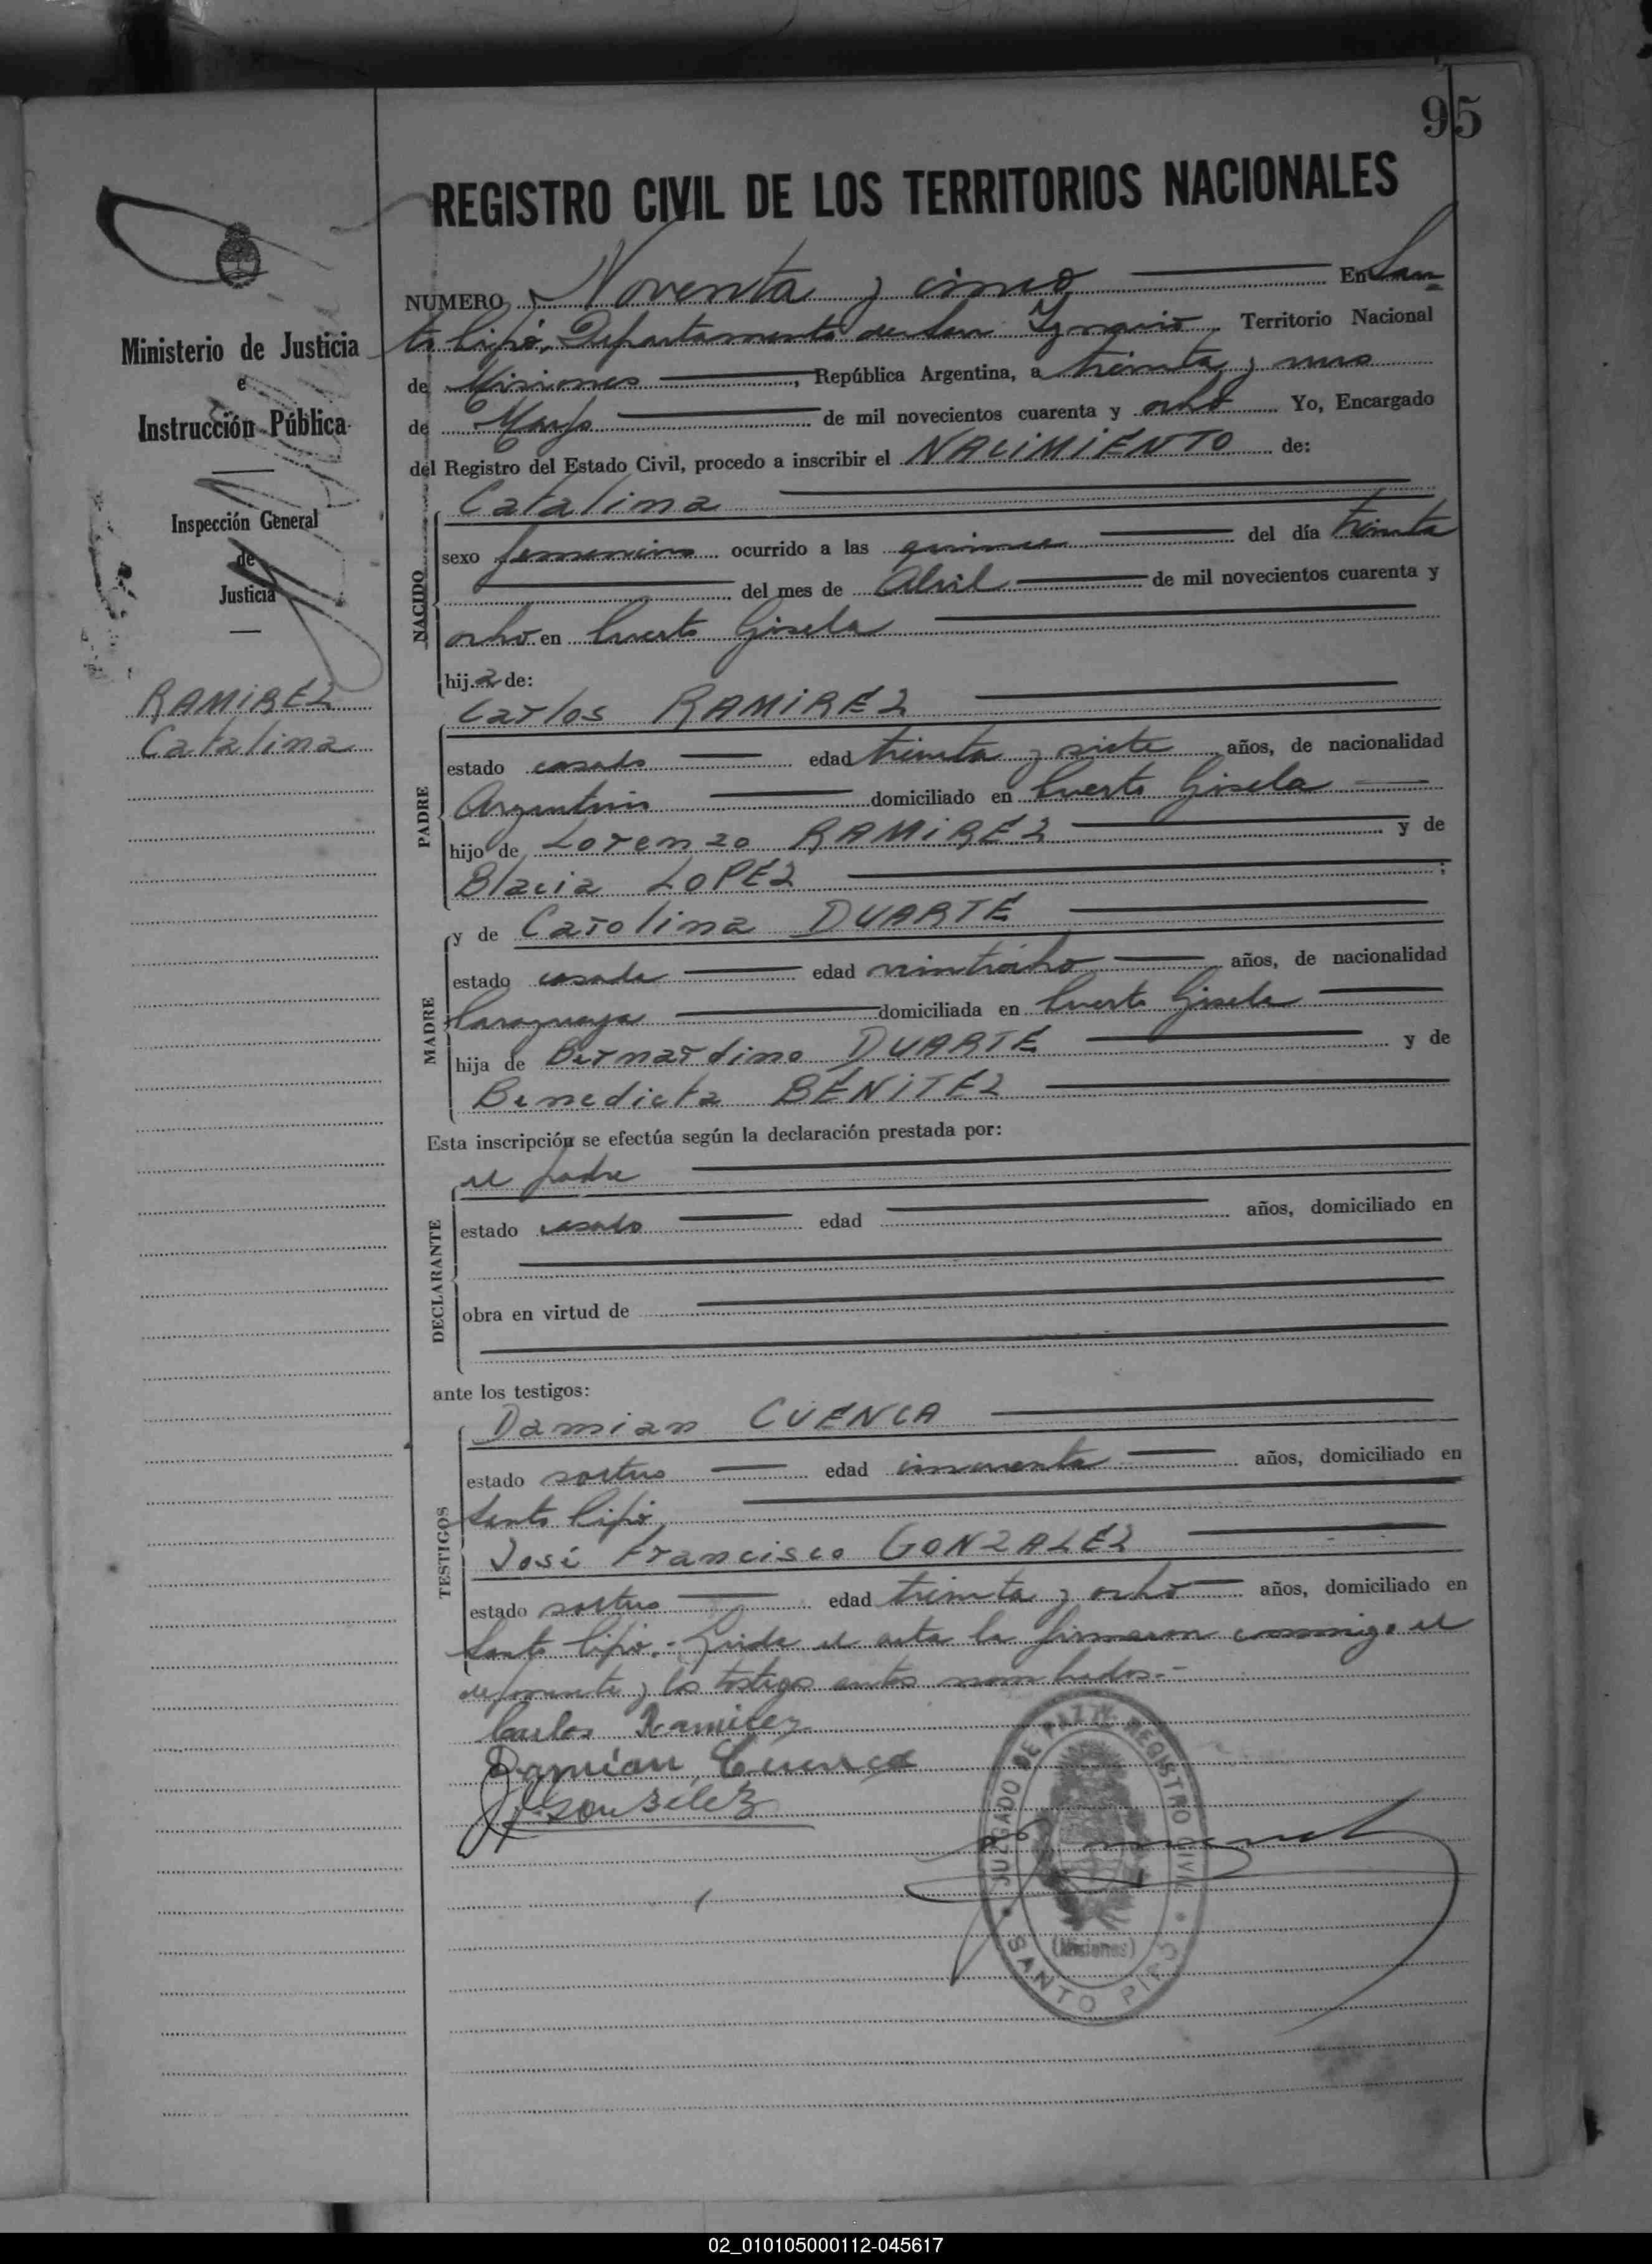 95
REGISTRO CIVIL DE LOS TERRITORIOS NACIONALES
NUMERO Noventa y cinco En San
to Pipó, Departamento de San Ygnacio Territorio Nacional
de Misiones, República Argentina, a treinta y uno
de Mayo de mil novecientos cuarenta y ocho Yo, Encargado
del Registro del Estado Civil, procedo a inscribir el NACIMIENTO de:
Ministerio de Justicia
e
Instrucción Pública
Inspección General
de
Justicia
RAMIREZ
Catalina
NACIDO
Catalina
sexo femenino ocurrido a las quince del día treinta
del mes de Abril de mil novecientos cuarenta y
ocho en Puerto Gisela
hija de:
PADRE
Carlos RAMIREZ
estado casado edad treinta y siete años, de nacionalidad
Argentino domiciliado en Puerto Gisela
hijo de Lorenzo RAMIREZ y de
Blacia LOPEZ ;
MADRE
y de Carolina DUARTE
estado casada edad veintiocho años, de nacionalidad
Paraguaya domiciliada en Puerto Gisela
hija de Bernardino DUARTE y de
Benedicta BÉNITEZ
Esta inscripción se efectúa según la declaración prestada por:
DECLARANTE
el padre
estado casado edad años, domiciliado en
obra en virtud de
ante los testigos:
TESTIGOS
Damian CUENCA
estado soltero edad cincuenta años, domiciliado en
Santo Pipó
José Francisco GONZALEZ
estado soltero edad treinta y ocho años, domiciliado en
Santo Pipó.- Leida el acta la firmaron conmigo el
deponente y los testigos antes nombrados.-
Carlos Ramirez
Damián Cuenca
JFGonzález
JUZGADO DE PAZ Y REGISTRO CIVIL
(Misiones)
SANTO PIPÓ
02_010105000112-045617